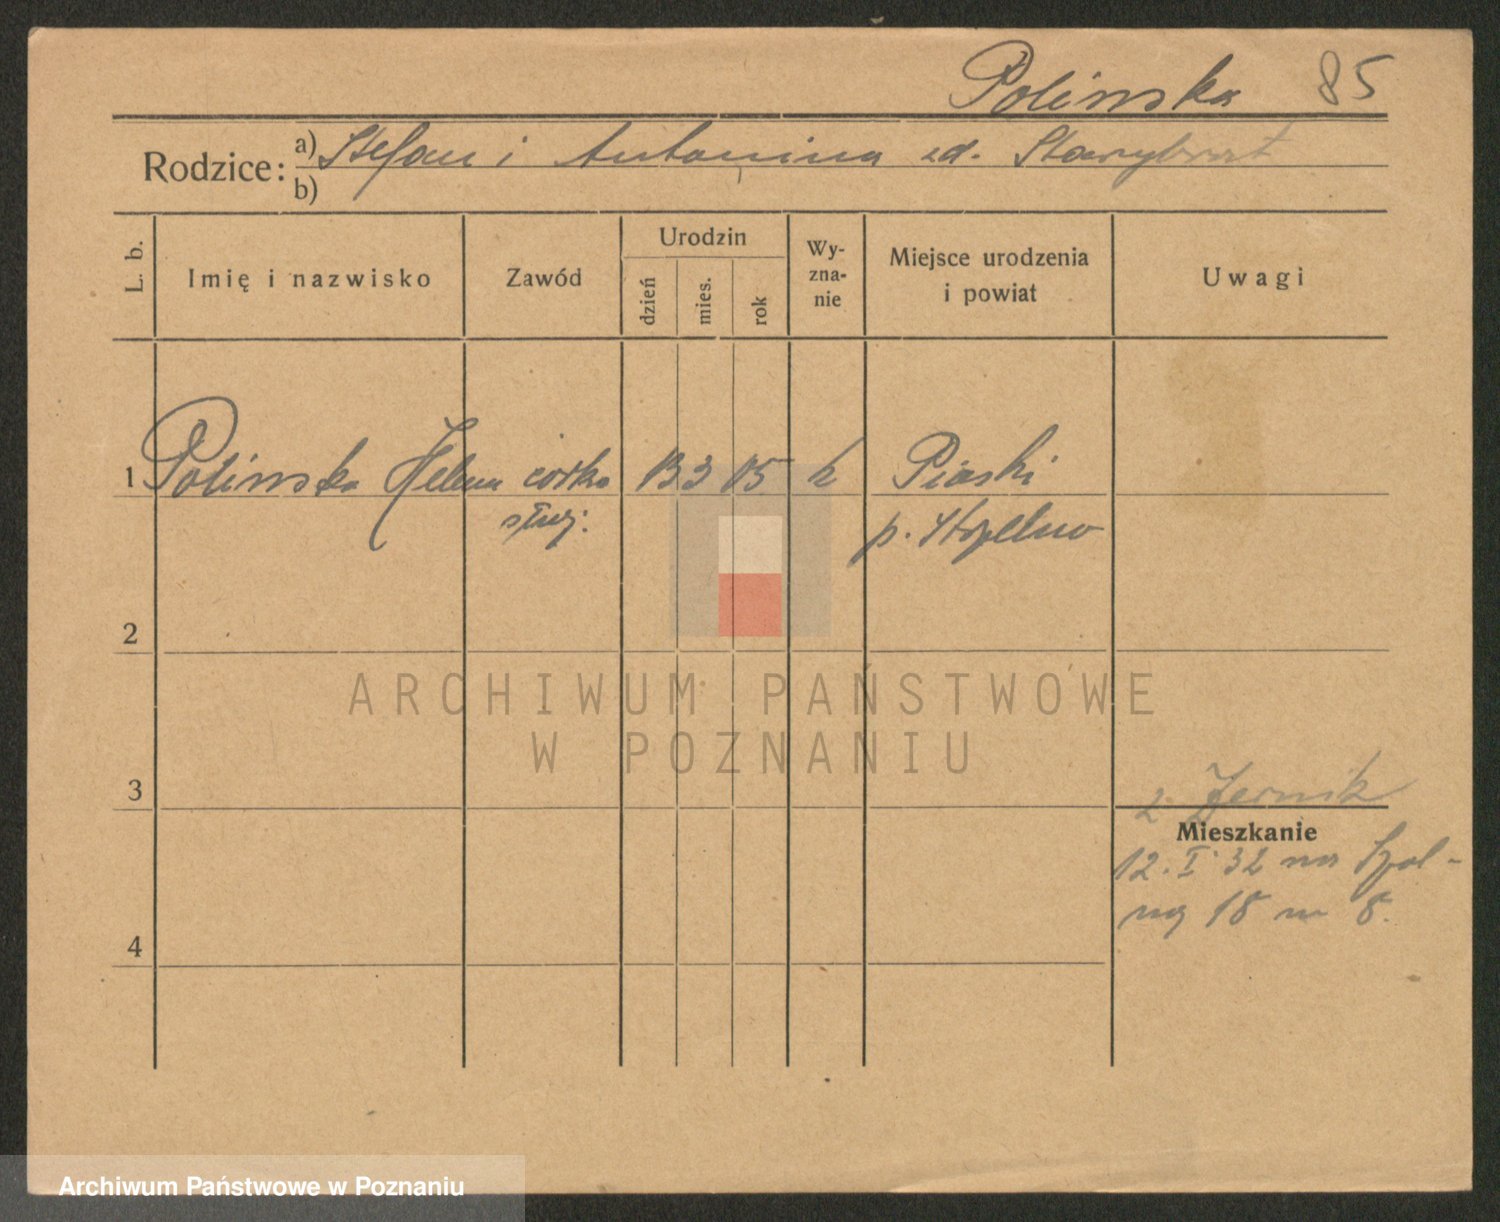 Polinska 85
Rodzice: a) Stefan i Antonina zd. Starybrat
b)
L. b. Imię i nazwisko Zawód Urodzin dzień mies. rok Wy-zna-nie Miejsce urodzenia i powiat Uwagi
1 Polinska Helena córka 13 3 05 k Piaski
służ: p. Strzelno
2
ARCHIWUM PAŃSTWOWE
W POZNANIU
3 z Żernik
Mieszkanie
12. I. 32 na Szpol-
ną 18 m 8.
4
Archiwum Państwowe w Poznaniu